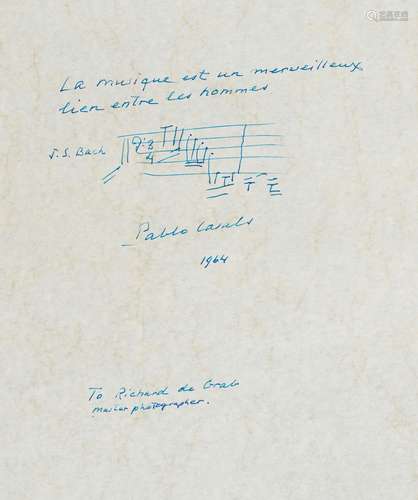 La musique est un merveilleux
lien entre les hommes
J. S. Bach 3
4
Pablo Casals
1964
To Richard de Grab
master photographer.